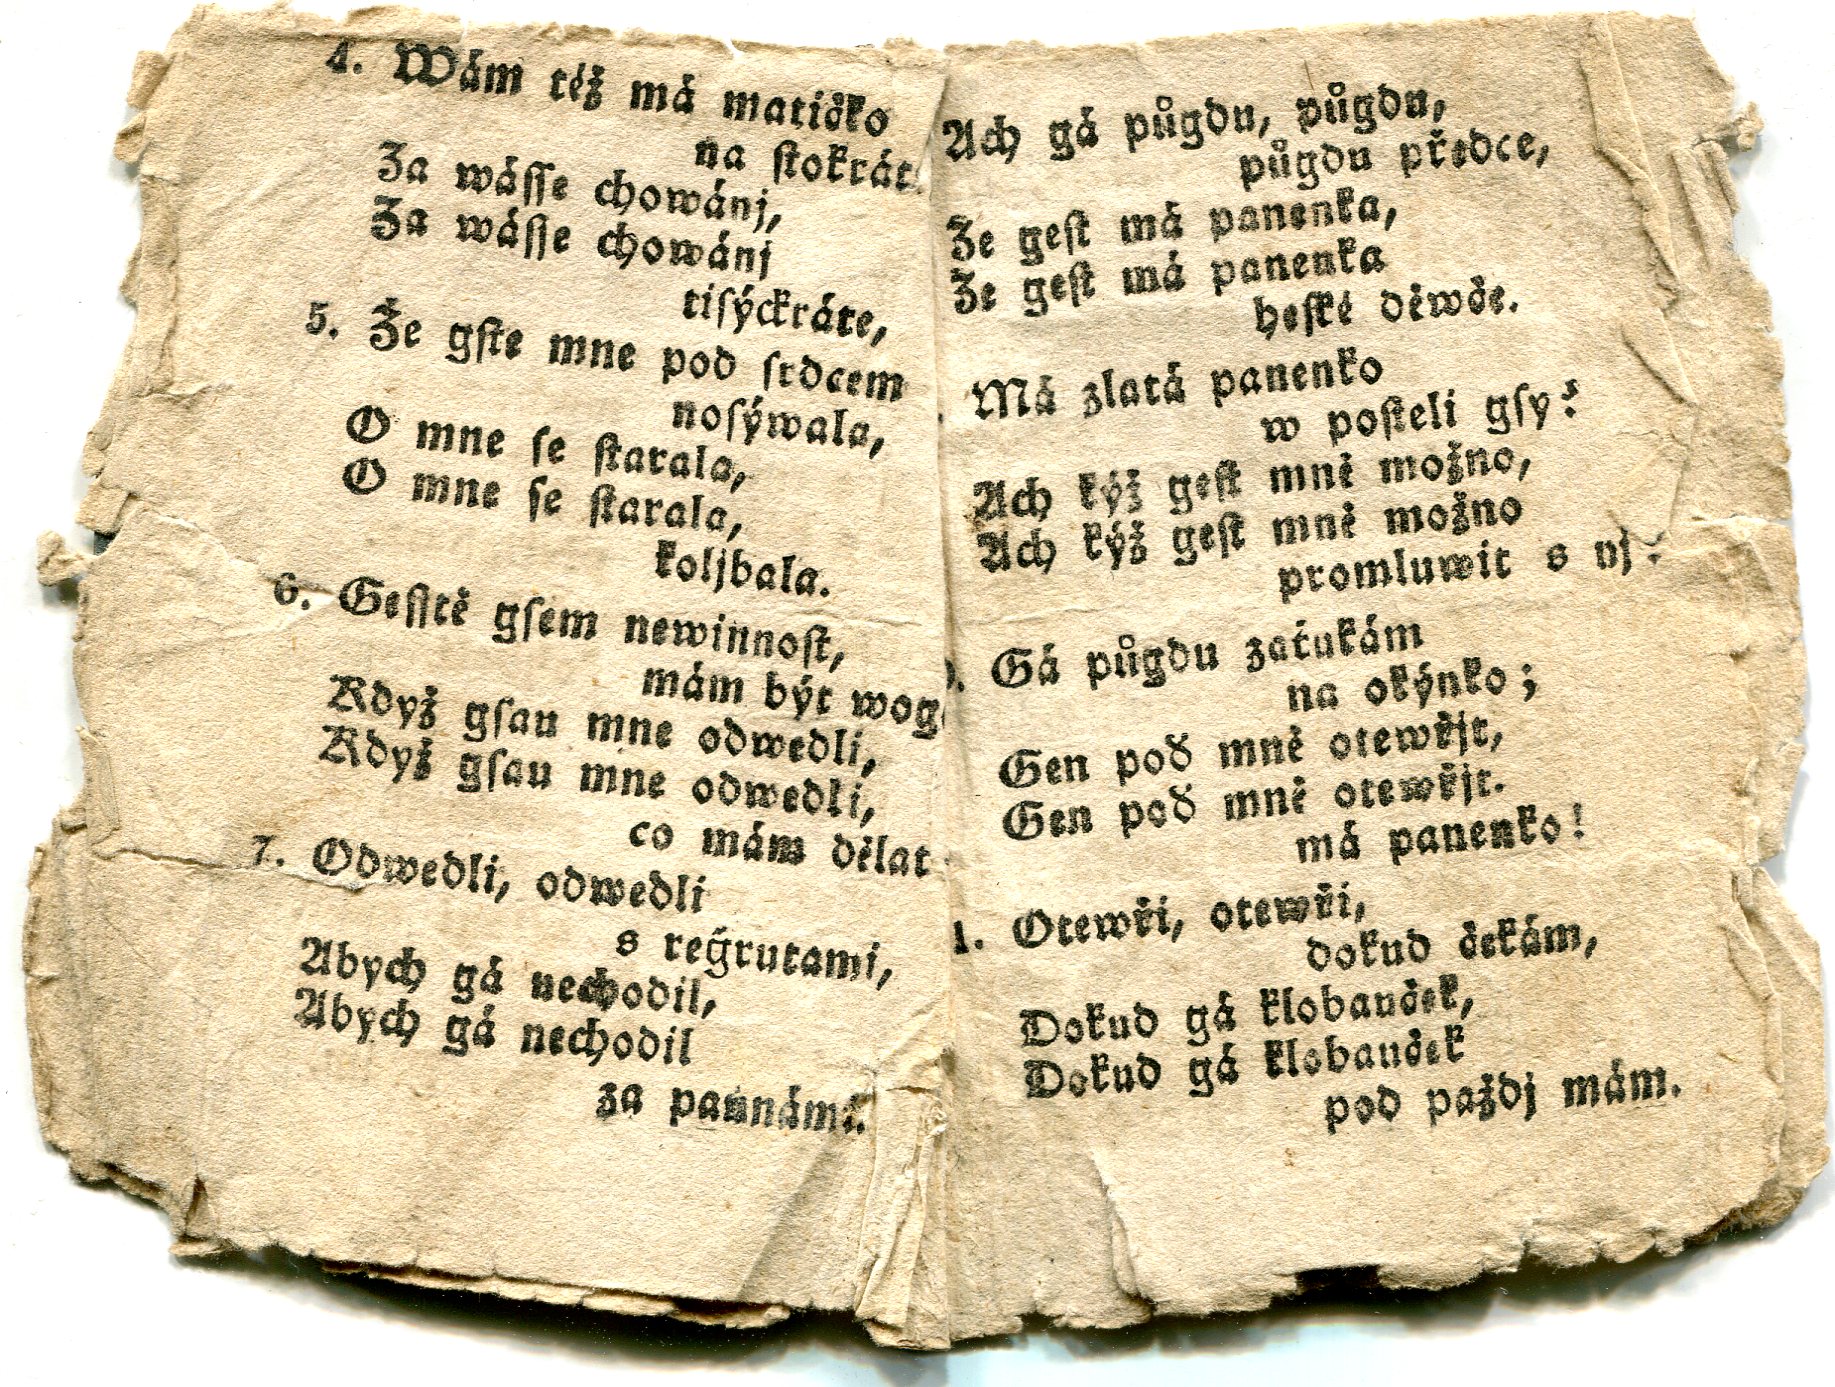 4. Wám též má matičko
na stokrát
Za wásse chowánj,
Za wásse chowánj
tisýckráte,
5. Že gste mne pod srdcem
nosýwala,
O mne se starala,
O mne se starala,
koljbala.
6. Gesstě gsem newinnost,
mám být
Když gsau mne odwedli,
Když gsau mne odwedli,
co mám dělat
7. Odwedli, odwedli
s reǧrutami,
Abych gá nechodil,
Abych gá nechodil
za pannámi.
Ach gá půgdu, půgdu,
půgdu předce,
Že gest má panenka,
Že gest má panenka
heské děwče.
Má zlatá panenko
w posteli gsy?
Ach kýž gest mně možno,
Ach kýž gest mně možno
promluwit s nj?
Gá půgdu zaťukám
na okýnko;
Gen poď mně otewřjt,
Gen poď mně otewřjt.
má panenko!
1. Otewři, otewři,
dokud čekám,
Dokud gá klobauček,
Dokud gá klobauček
pod paždj mám.